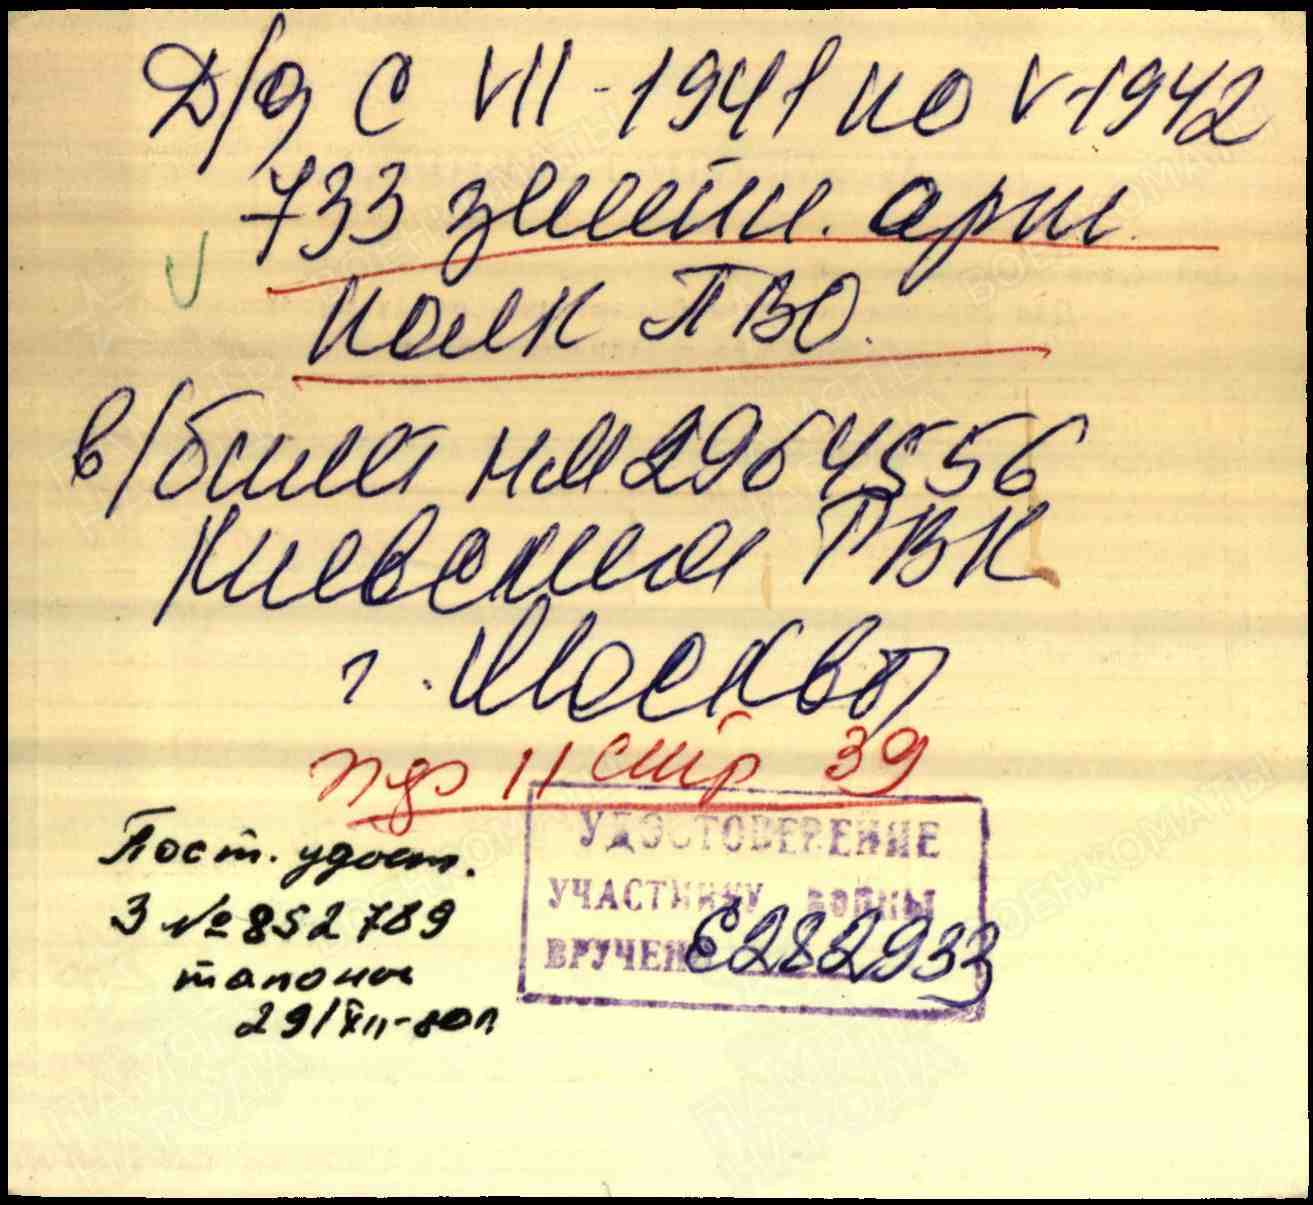 Д/а с VII-1941 по V-1942
733 зенитн. арт.
полк ПВО.
в/билет НМ 2964556
Киевский РВК
г. Москвы
пр 11 стр 39
Пост. удост.
З № 852789
талоны
29/XII-80г
УДОСТОВЕРЕНИЕ
УЧАСТНИКУ ВОЙНЫ
ВРУЧЕНО Е282933